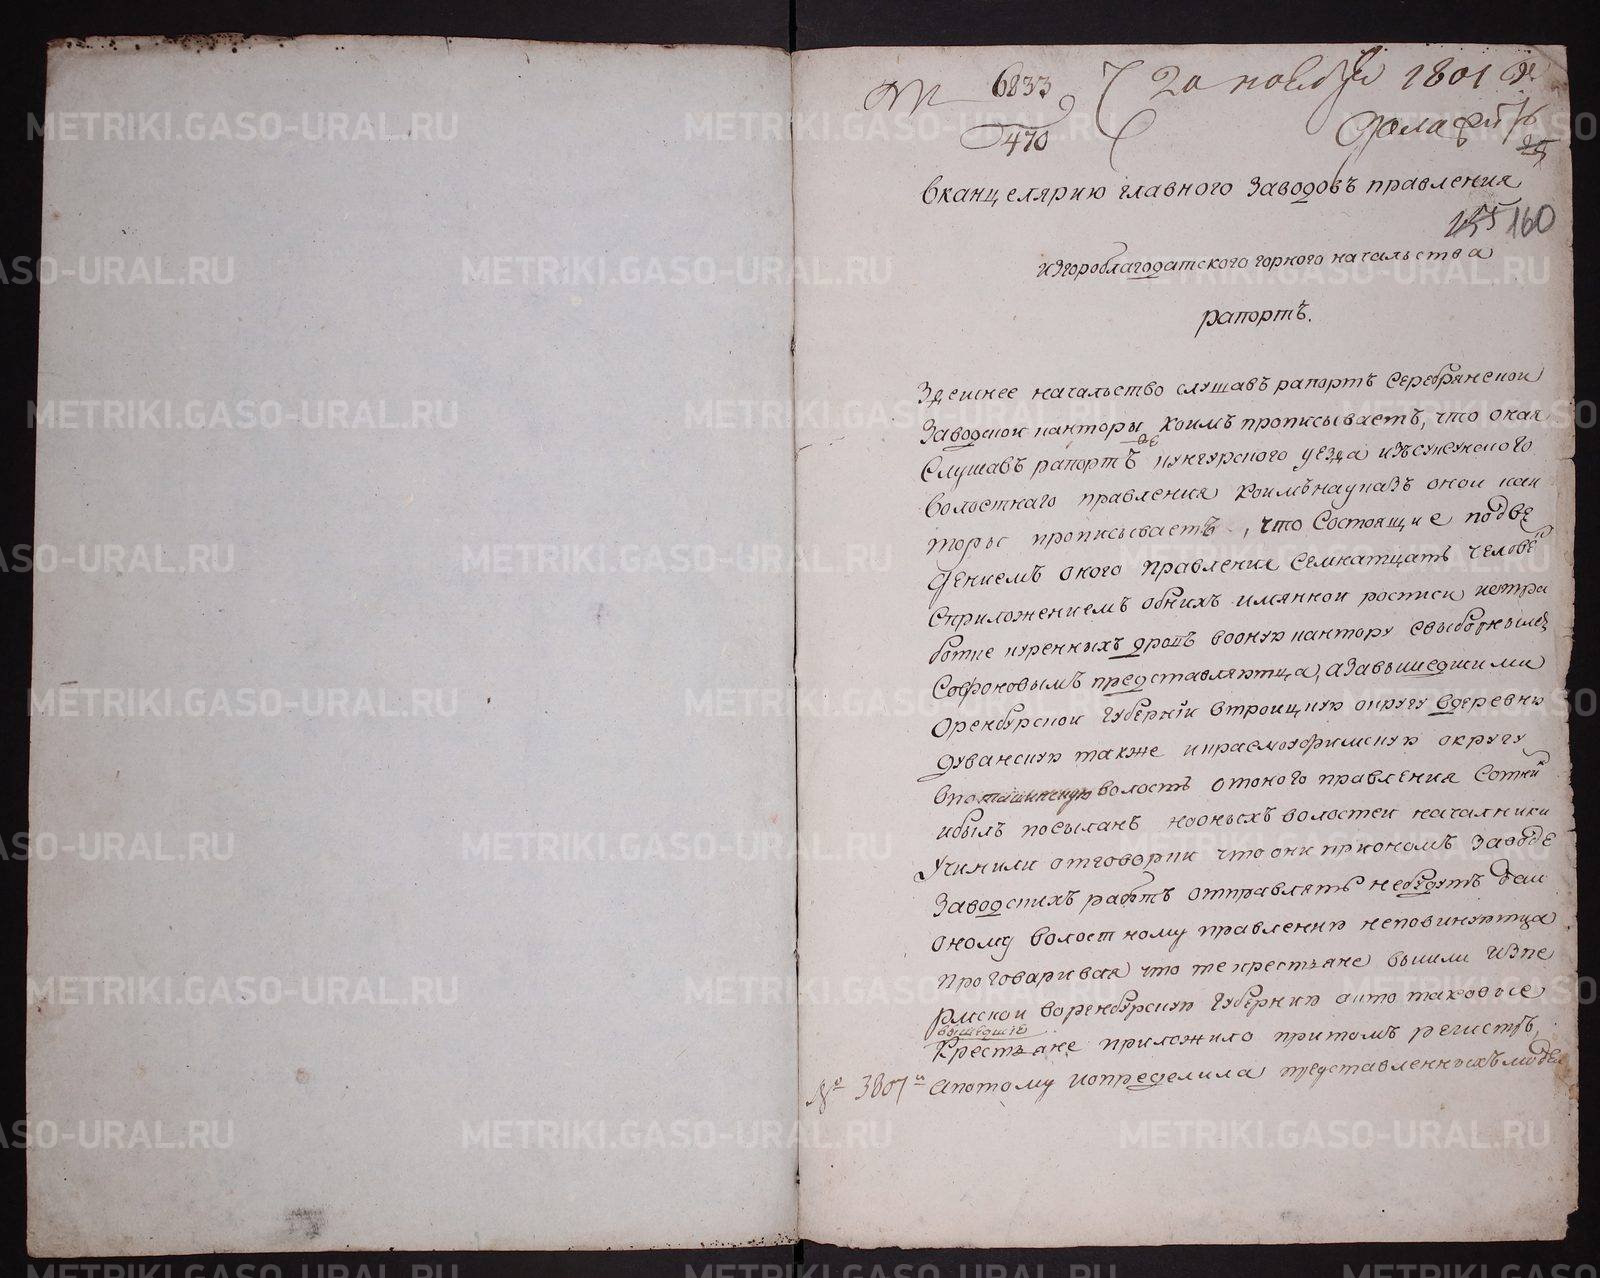 № 6833 20 ноября 1801 го
470
25
Вканцелярию главного заводовъ правления
155 160
изгороблагодатского горного начальства
рапортъ.
Здешнее начальство слушавъ рапортъ Серебрянской
заводской канторы коимъ прописываетъ, что оная
слушавъ рапортъ кунгурского уезда
волостнаго правления коимъ науказъ оной кан
торы прописываетъ, что состоящие подве
дениемъ оного правления семнатцать челове
сприложениемъ обнихъ имянной росписи
куренныхъ дровъ воную кантору свыборнымъ
Софроновымъ представляютца, азавышедшими
оренбурской губернии втроицкую округу вдеревню
дуванскую также икрасноуфимскую округу
волость отоного правления
ибылъ посыланъ нооныхъ волостей началники
учинили отговорки что они приономъ заводе
заводскихъ работъ отправлять небудутъ даи
оному волостному правлению неповинуютца
проговаривая что те крестьяне вышли изпе
рмской воренбурскую губернию акто таковые
вышедшие
крестьяне приложило притомъ регистръ,
№ 3807 апотому иопределила представленныхъ людей
METRIKI.GASO-URAL.RU